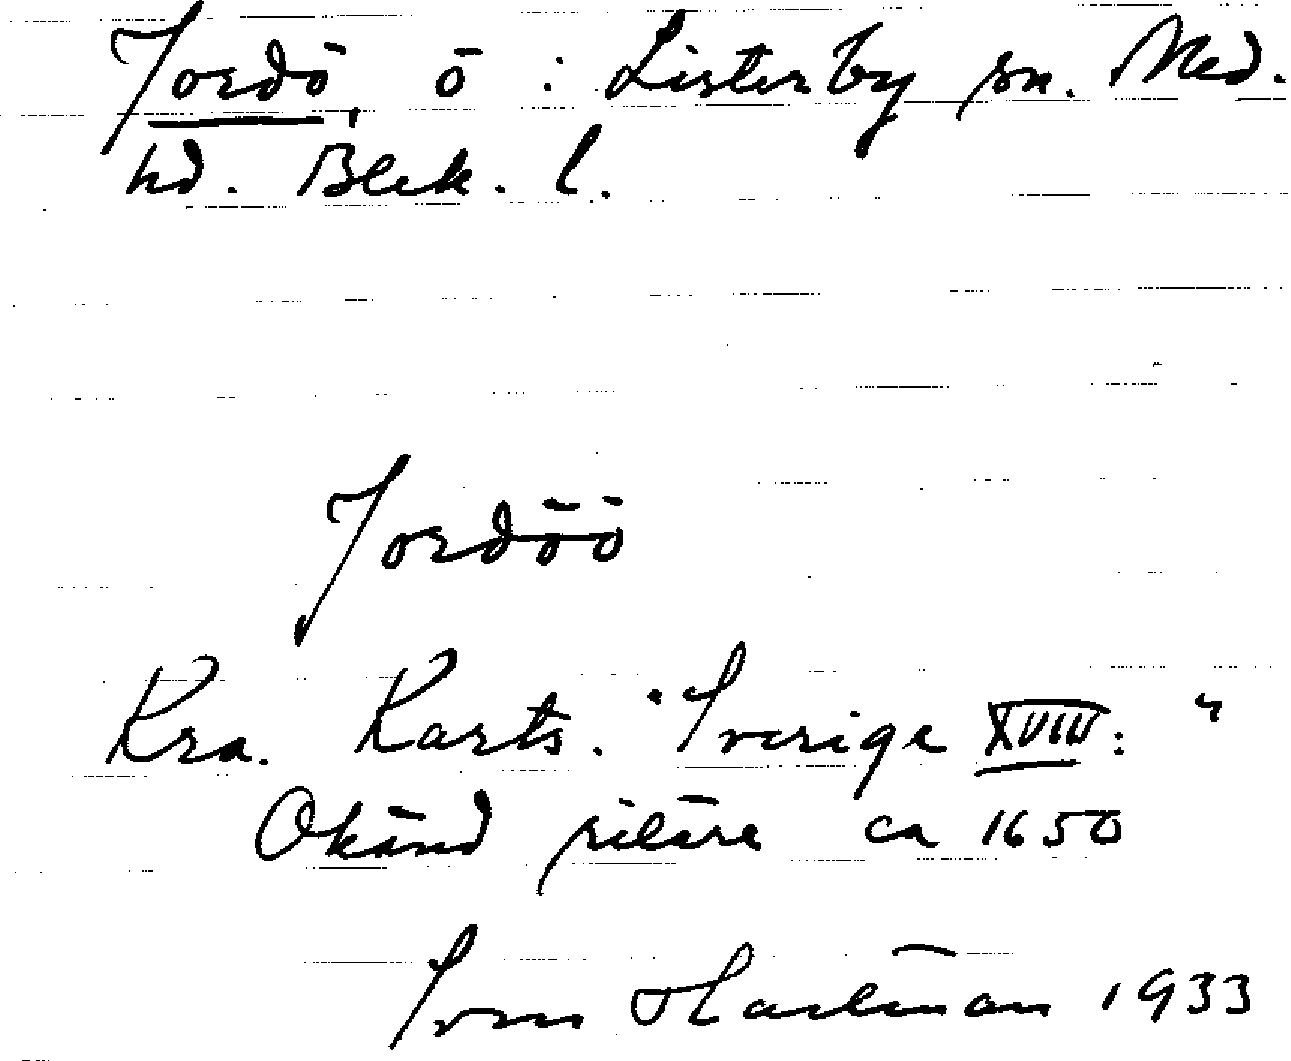 Jordö, ö : Listerby sn. Med.
hd. Blek. l.
Jordöö
Kra. Karts. "Sverige XVIII: "
Okänd ritare ca 1650
Sven Hartman 1933